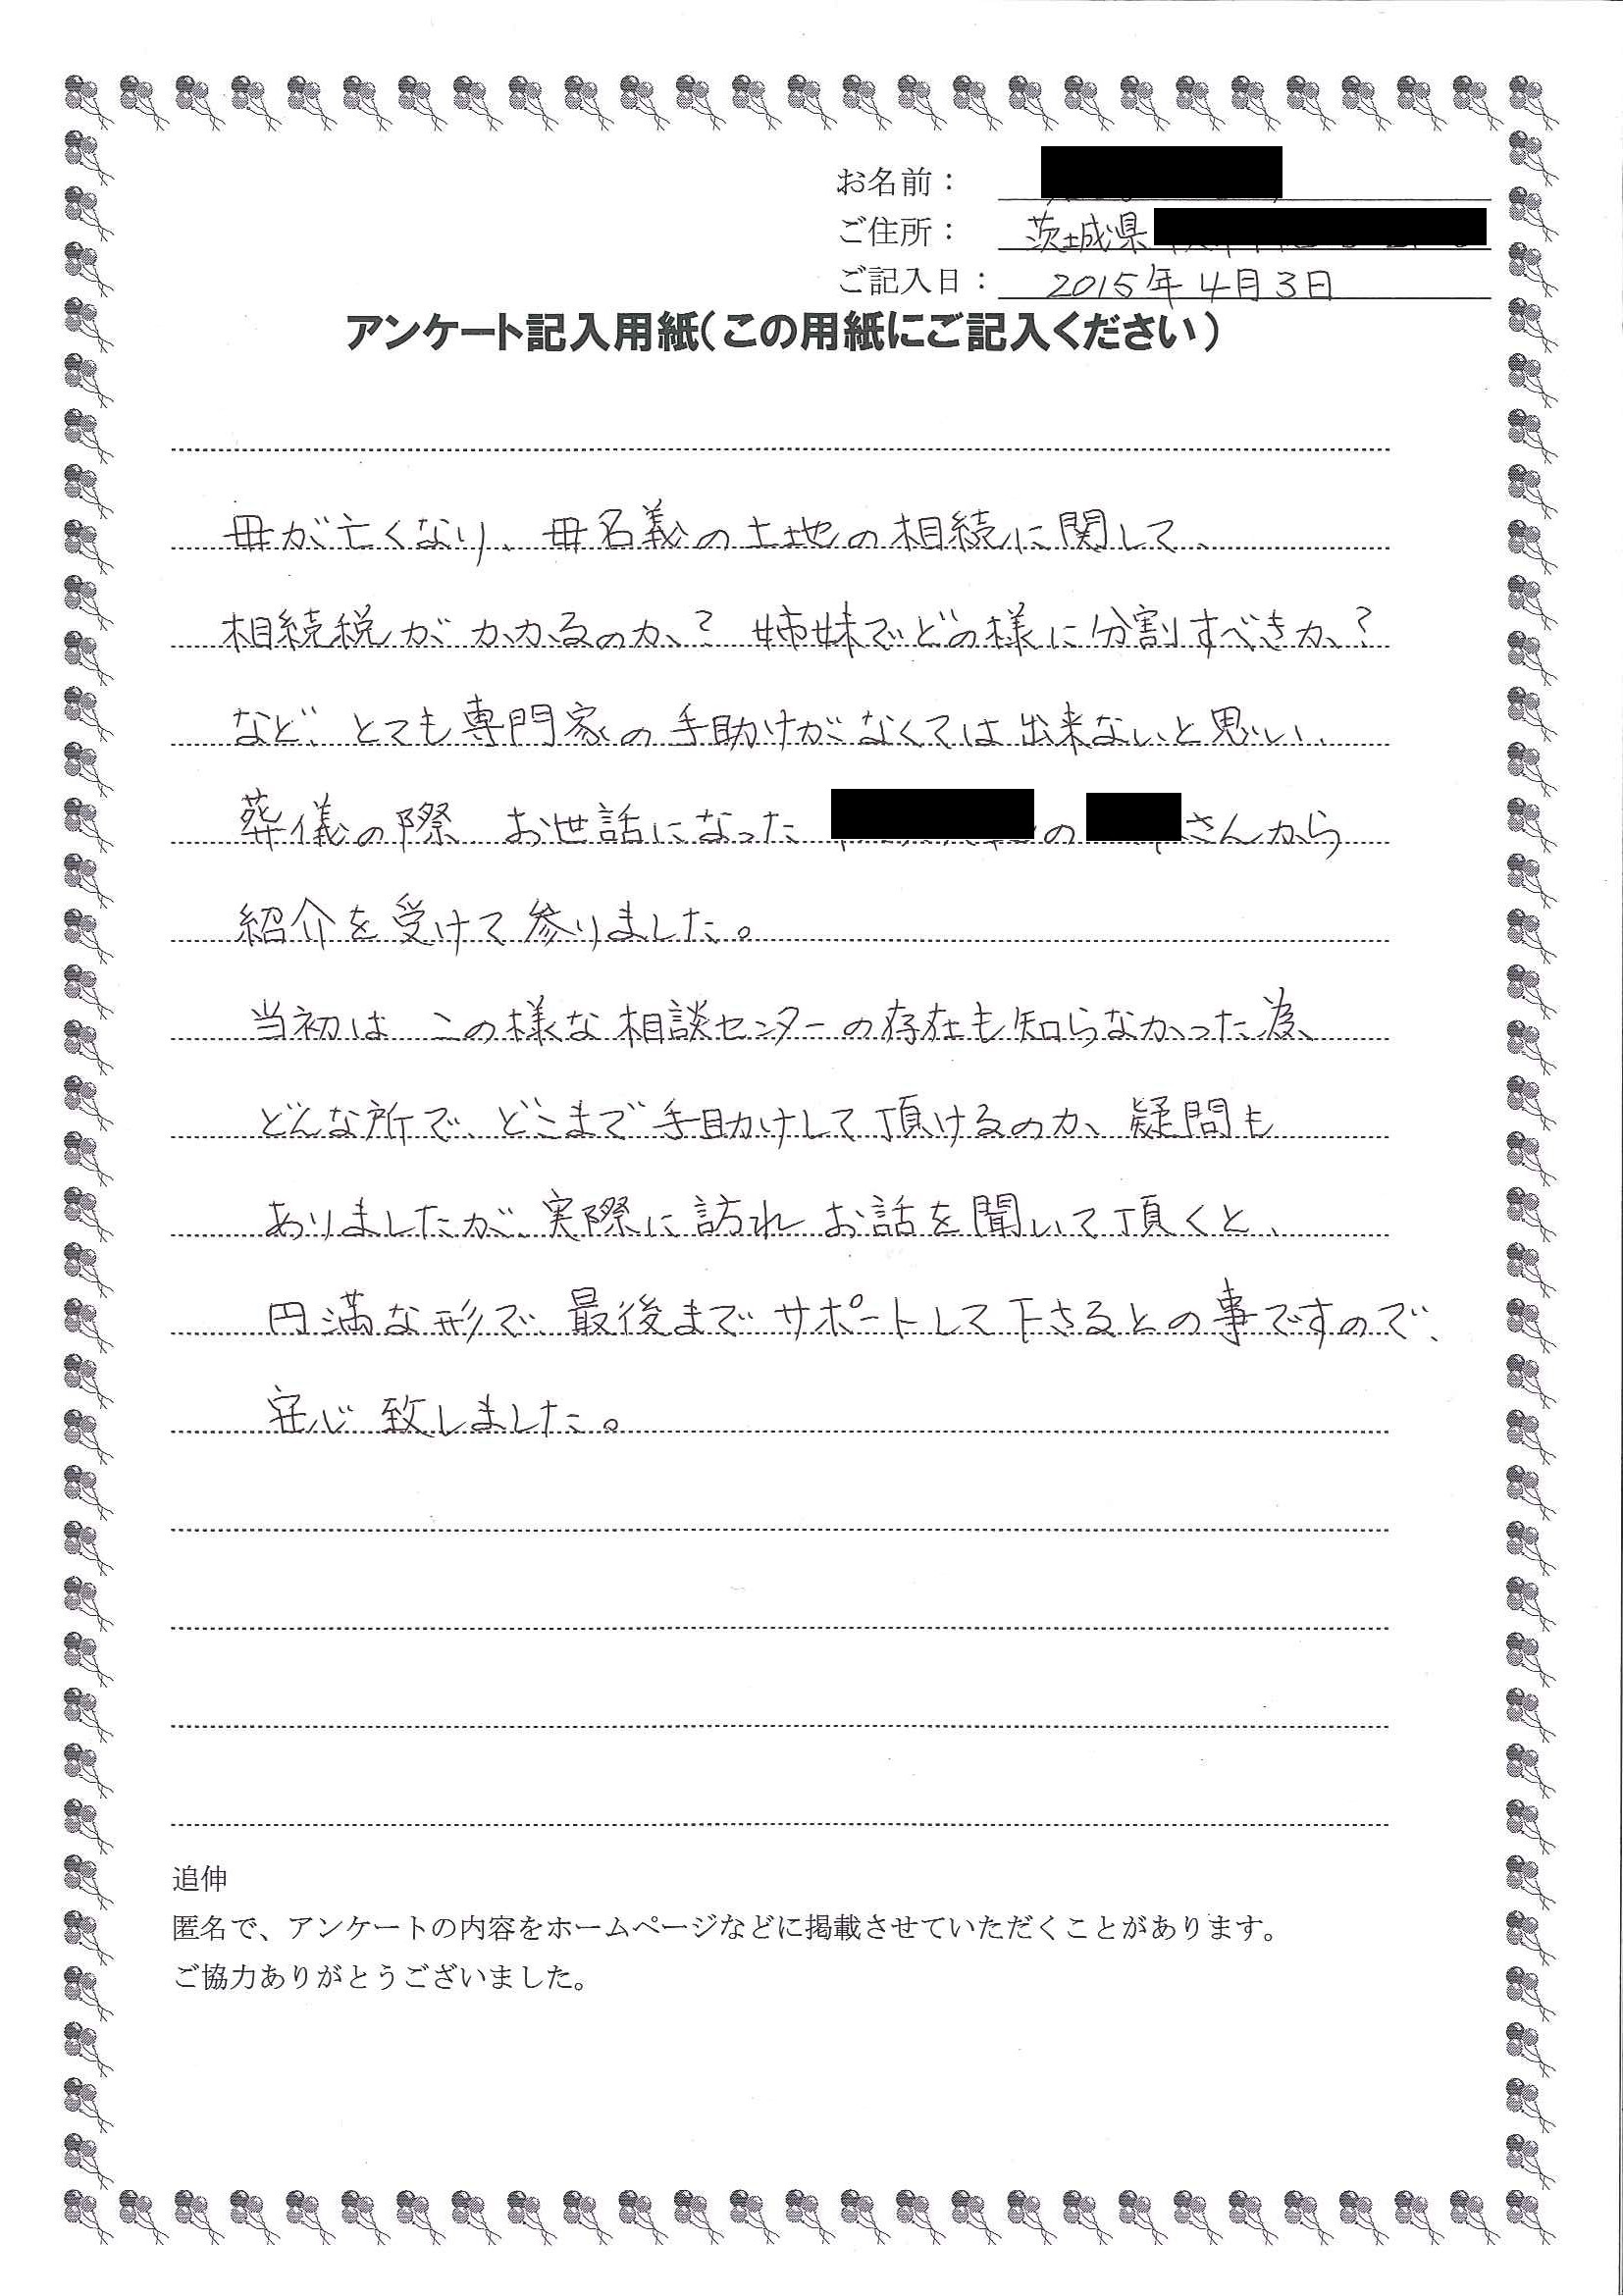 お名前：
ご住所： 茨城県
ご記入日： 2015年4月3日
アンケート記入用紙（この用紙にご記入ください）
母が亡くなり、母名義の土地の相続に関して、
相続税がかかるのか？姉妹でどの様に分割すべきか？
など、とても専門家の手助けがなくては出来ないと思い、
葬儀の際、お世話になった の さんから
紹介を受けて参りました。
当初は この様な相談センターの存在も知らなかった為、
どんな所で、どこまで手助けして頂けるのか、疑問も
ありましたが、実際に訪れ お話を聞いて頂くと、
円満な形で、最後までサポートして下さるとの事ですので、
安心致しました。
追伸
匿名で、アンケートの内容をホームページなどに掲載させていただくことがあります。
ご協力ありがとうございました。